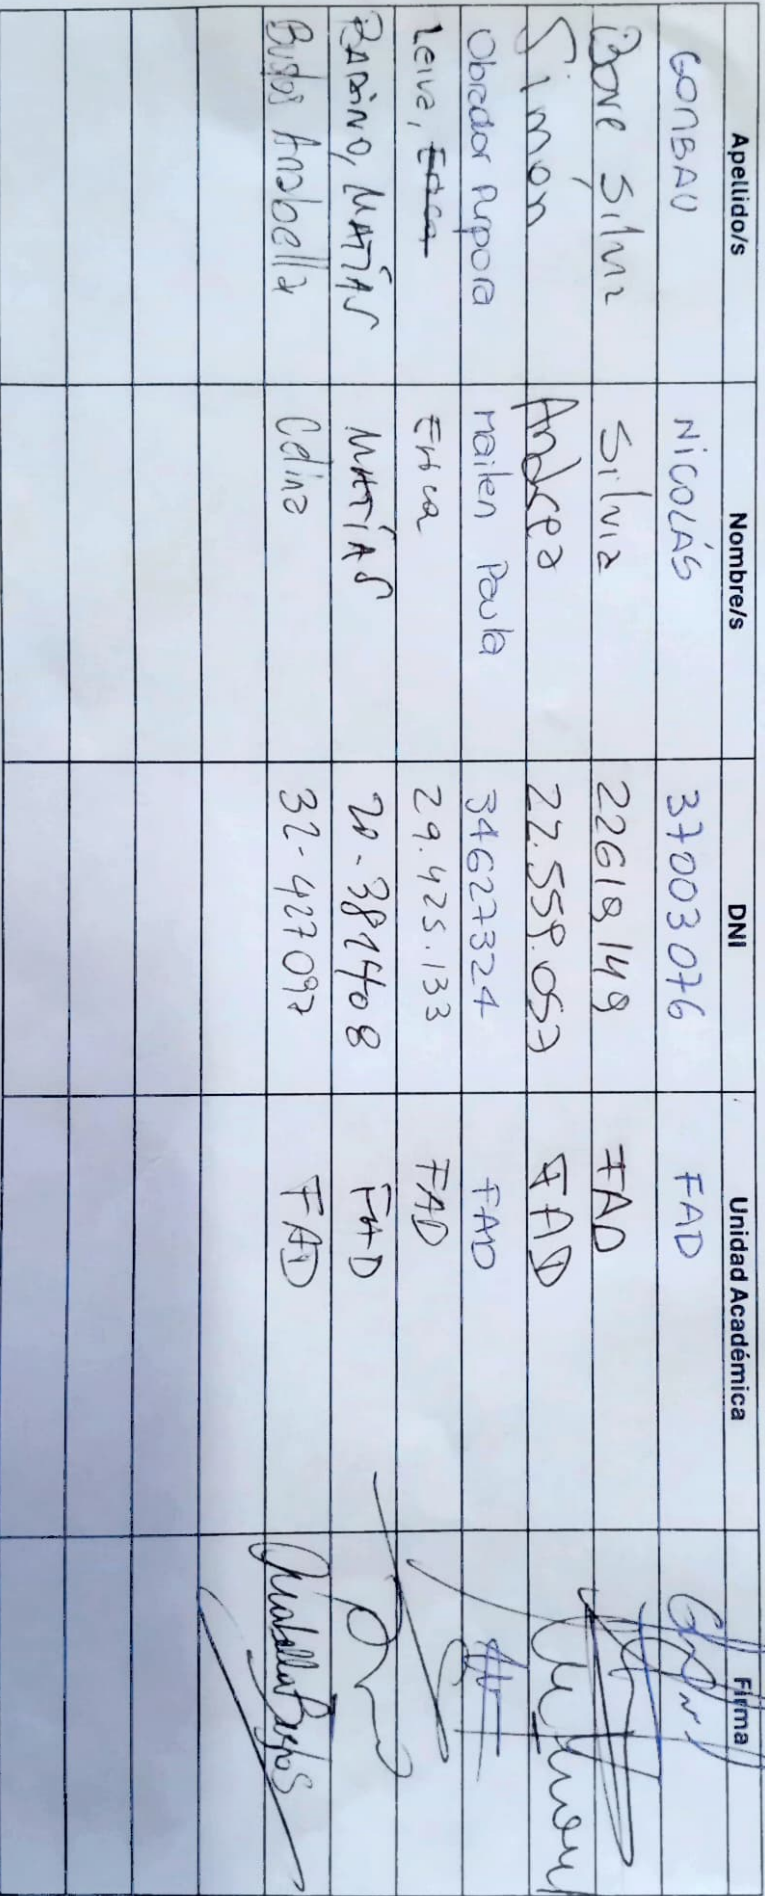 Apellido/s Nombre/s DNI Unidad Académica Firma
GOMBAU NICOLÁS 37003076 FAD
Bove Silvia Silvia 22619149 FAD
Simón Andrea 22.559.057 FAD
Obrador Purpora Mailen Paula 34627324 FAD
Leiva, Erica Erica 29.425.133 FAD
MATÍAS MATÍAS FAD
Bustos Anabella Celina 32-427097 FAD Anabella Bustos